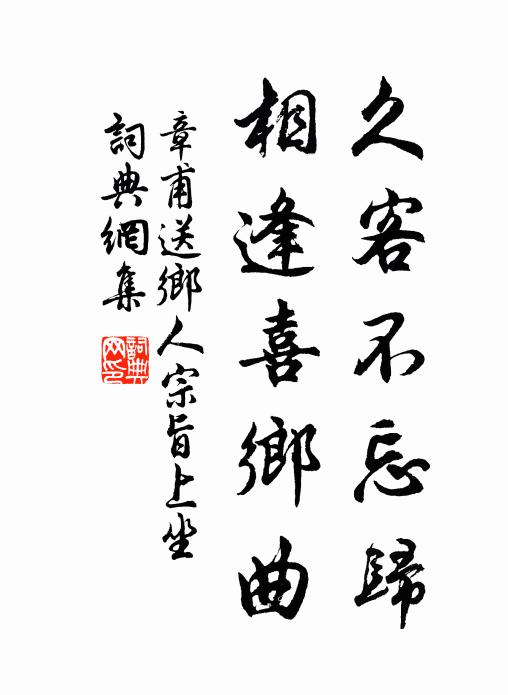 久客不忘歸
相逢喜鄉曲
章甫送鄉人宗旨上坐
詞典網集
詞典網印